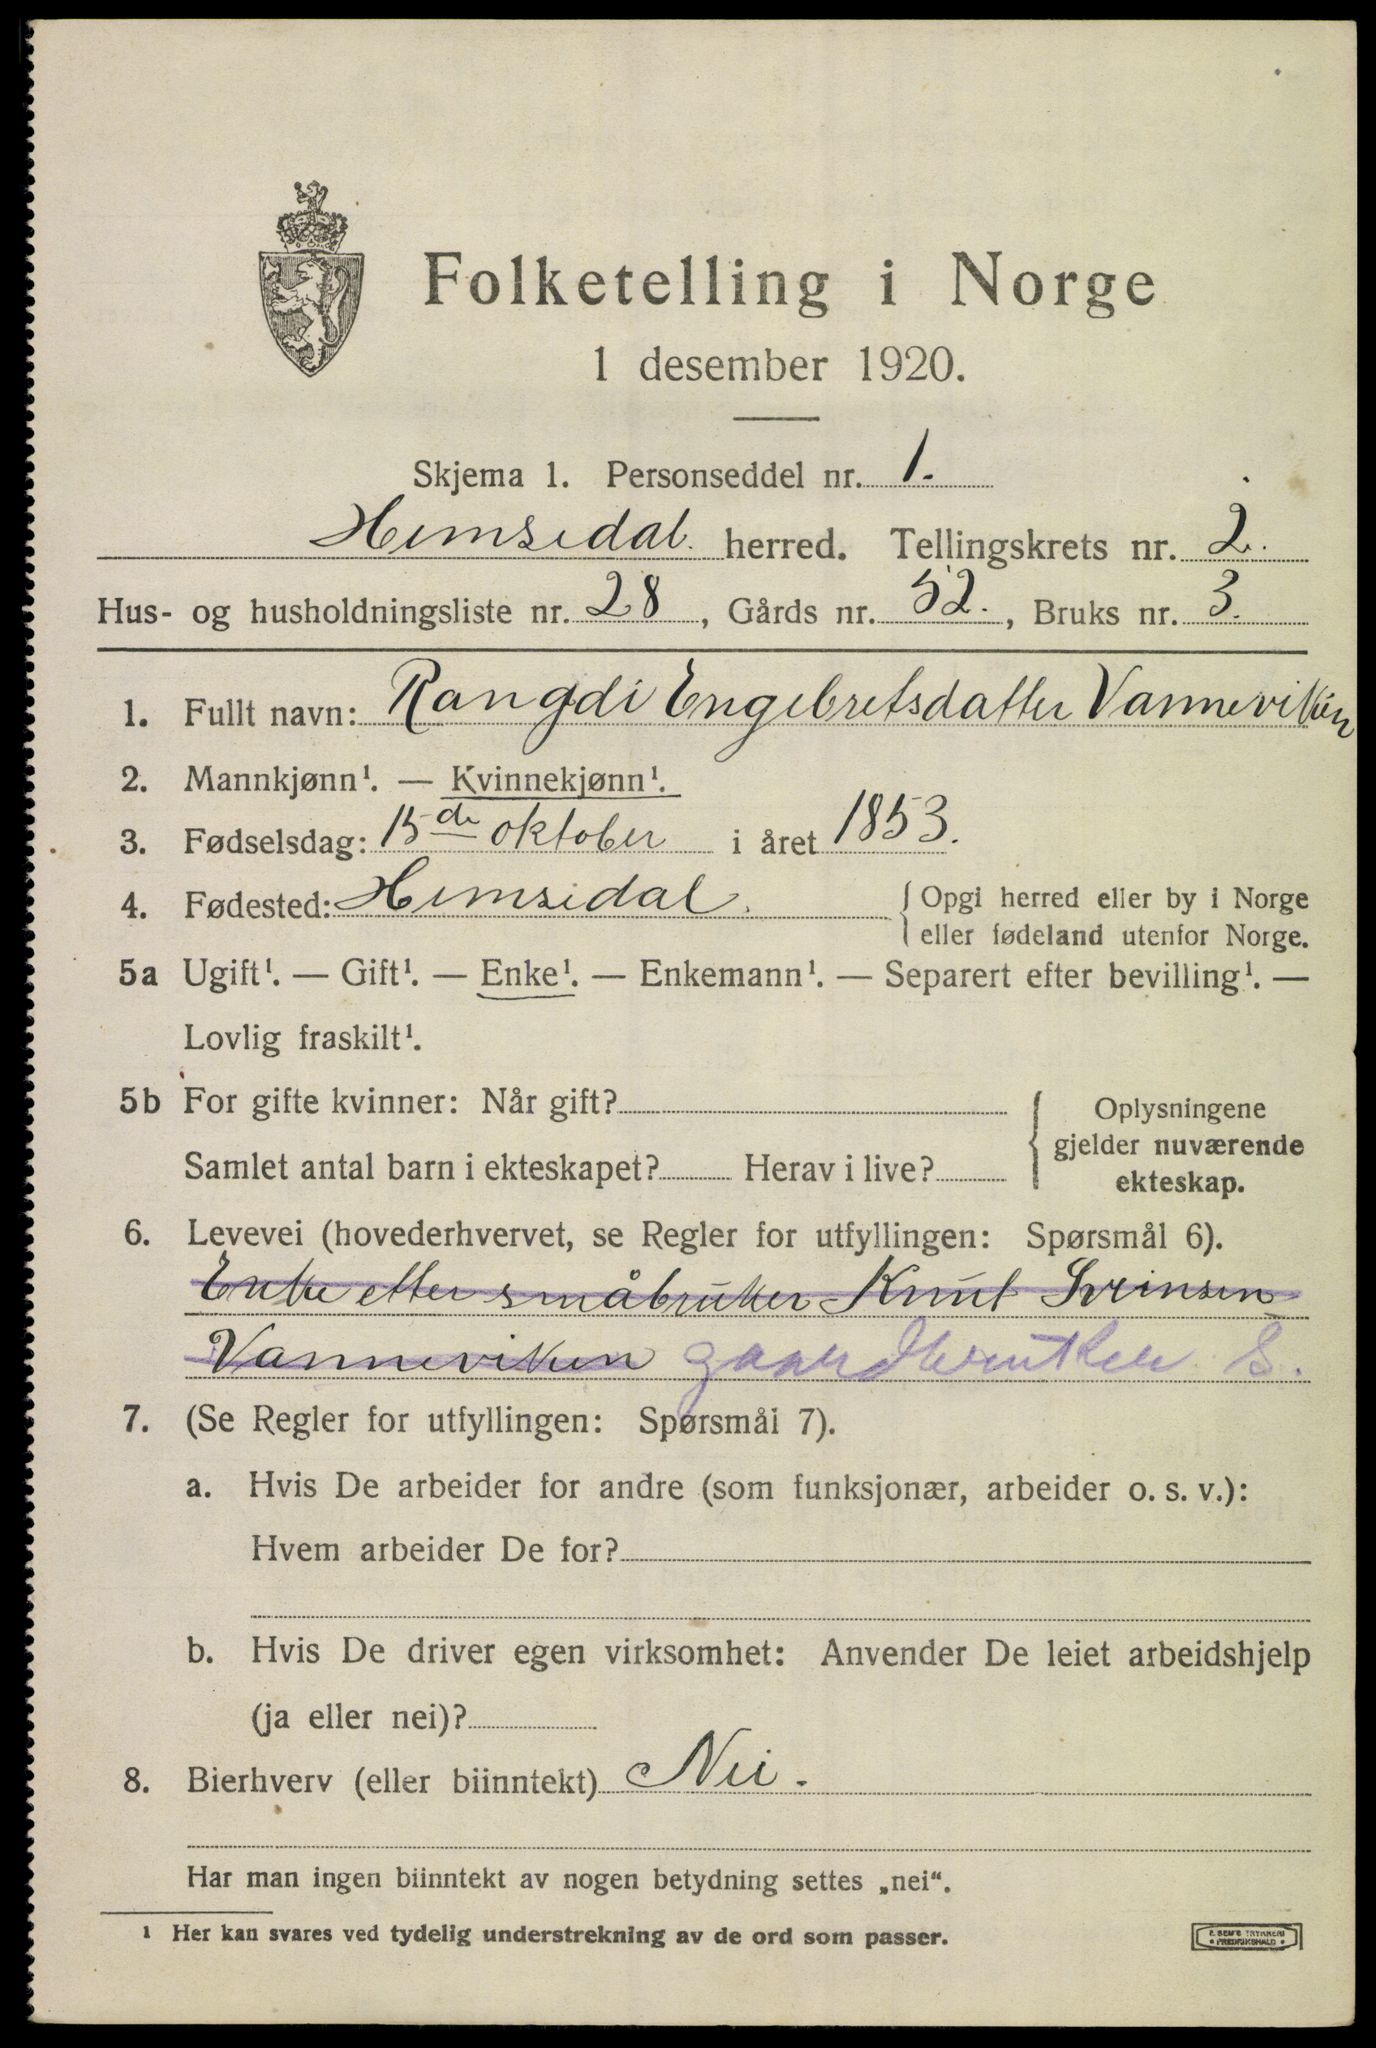 Folketelling i Norge
1 desember 1920.
Skjema 1. Personseddel nr. 1.
Hemsedal herred. Tellingskrets nr. 2.
Hus- og husholdningsliste nr. 28, Gårds nr. 52., Bruks nr. 3.
1. Fullt navn: Rangdi Engebretsdatter Vanneviken
2. Mannkjønn¹. — Kvinnekjønn¹.
3. Fødselsdag: 15de oktober i året 1853.
4. Fødested: Hemsedal. { Opgi herred eller by i Norge
eller fødeland utenfor Norge.
5a Ugift¹. — Gift¹. — Enke¹. — Enkemann¹. — Separert efter bevilling¹. —
Lovlig fraskilt¹.
5b For gifte kvinner: Når gift?
Samlet antal barn i ekteskapet? Herav i live?
Oplysningene
gjelder nuværende
ekteskap.
6. Levevei (hovederhvervet, se Regler for utfyllingen: Spørsmål 6).
Enke etter småbruker Knut Svensen
Vanneviken gaardbruker S.
7. (Se Regler for utfyllingen: Spørsmål 7).
a. Hvis De arbeider for andre (som funksjonær, arbeider o. s. v.):
Hvem arbeider De for?
b. Hvis De driver egen virksomhet: Anvender De leiet arbeidshjelp
(ja eller nei)?
8. Bierhverv (eller biinntekt) Nei.
Har man ingen biinntekt av nogen betydning settes „nei“.
¹ Her kan svares ved tydelig understrekning av de ord som passer.
E. SEM'S TRYKKERI
• FREDRIKSHALD •